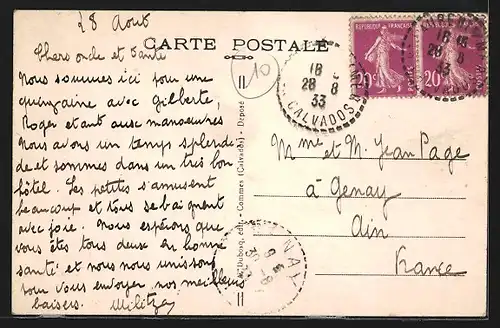 28 Aout
CARTE POSTALE
Chers oncle et tante
Nous sommes ici pour une
quinzaine avec Gilberte,
Roger étant aux manoeuvres
Nous avons un temps splendi-
de et sommes dans un très bon
hôtel. Les petites s'amusent
beaucoup et tous se baignent
avec joie. Nous espérons que
vous êtes tous deux en bonne
santé et nous nous unissons
pour vous envoyer nos meilleurs
baisers. Militza
10
Dubosq, édit. - Commes (Calvados) - Déposé
REPUBLIQUE FRANÇAISE
20c POSTES
20c POSTES
18
28 8
33
CALVADOS
18
28 8
33
Mme et M. Jean Page
à Genay
Ain
France
NAY